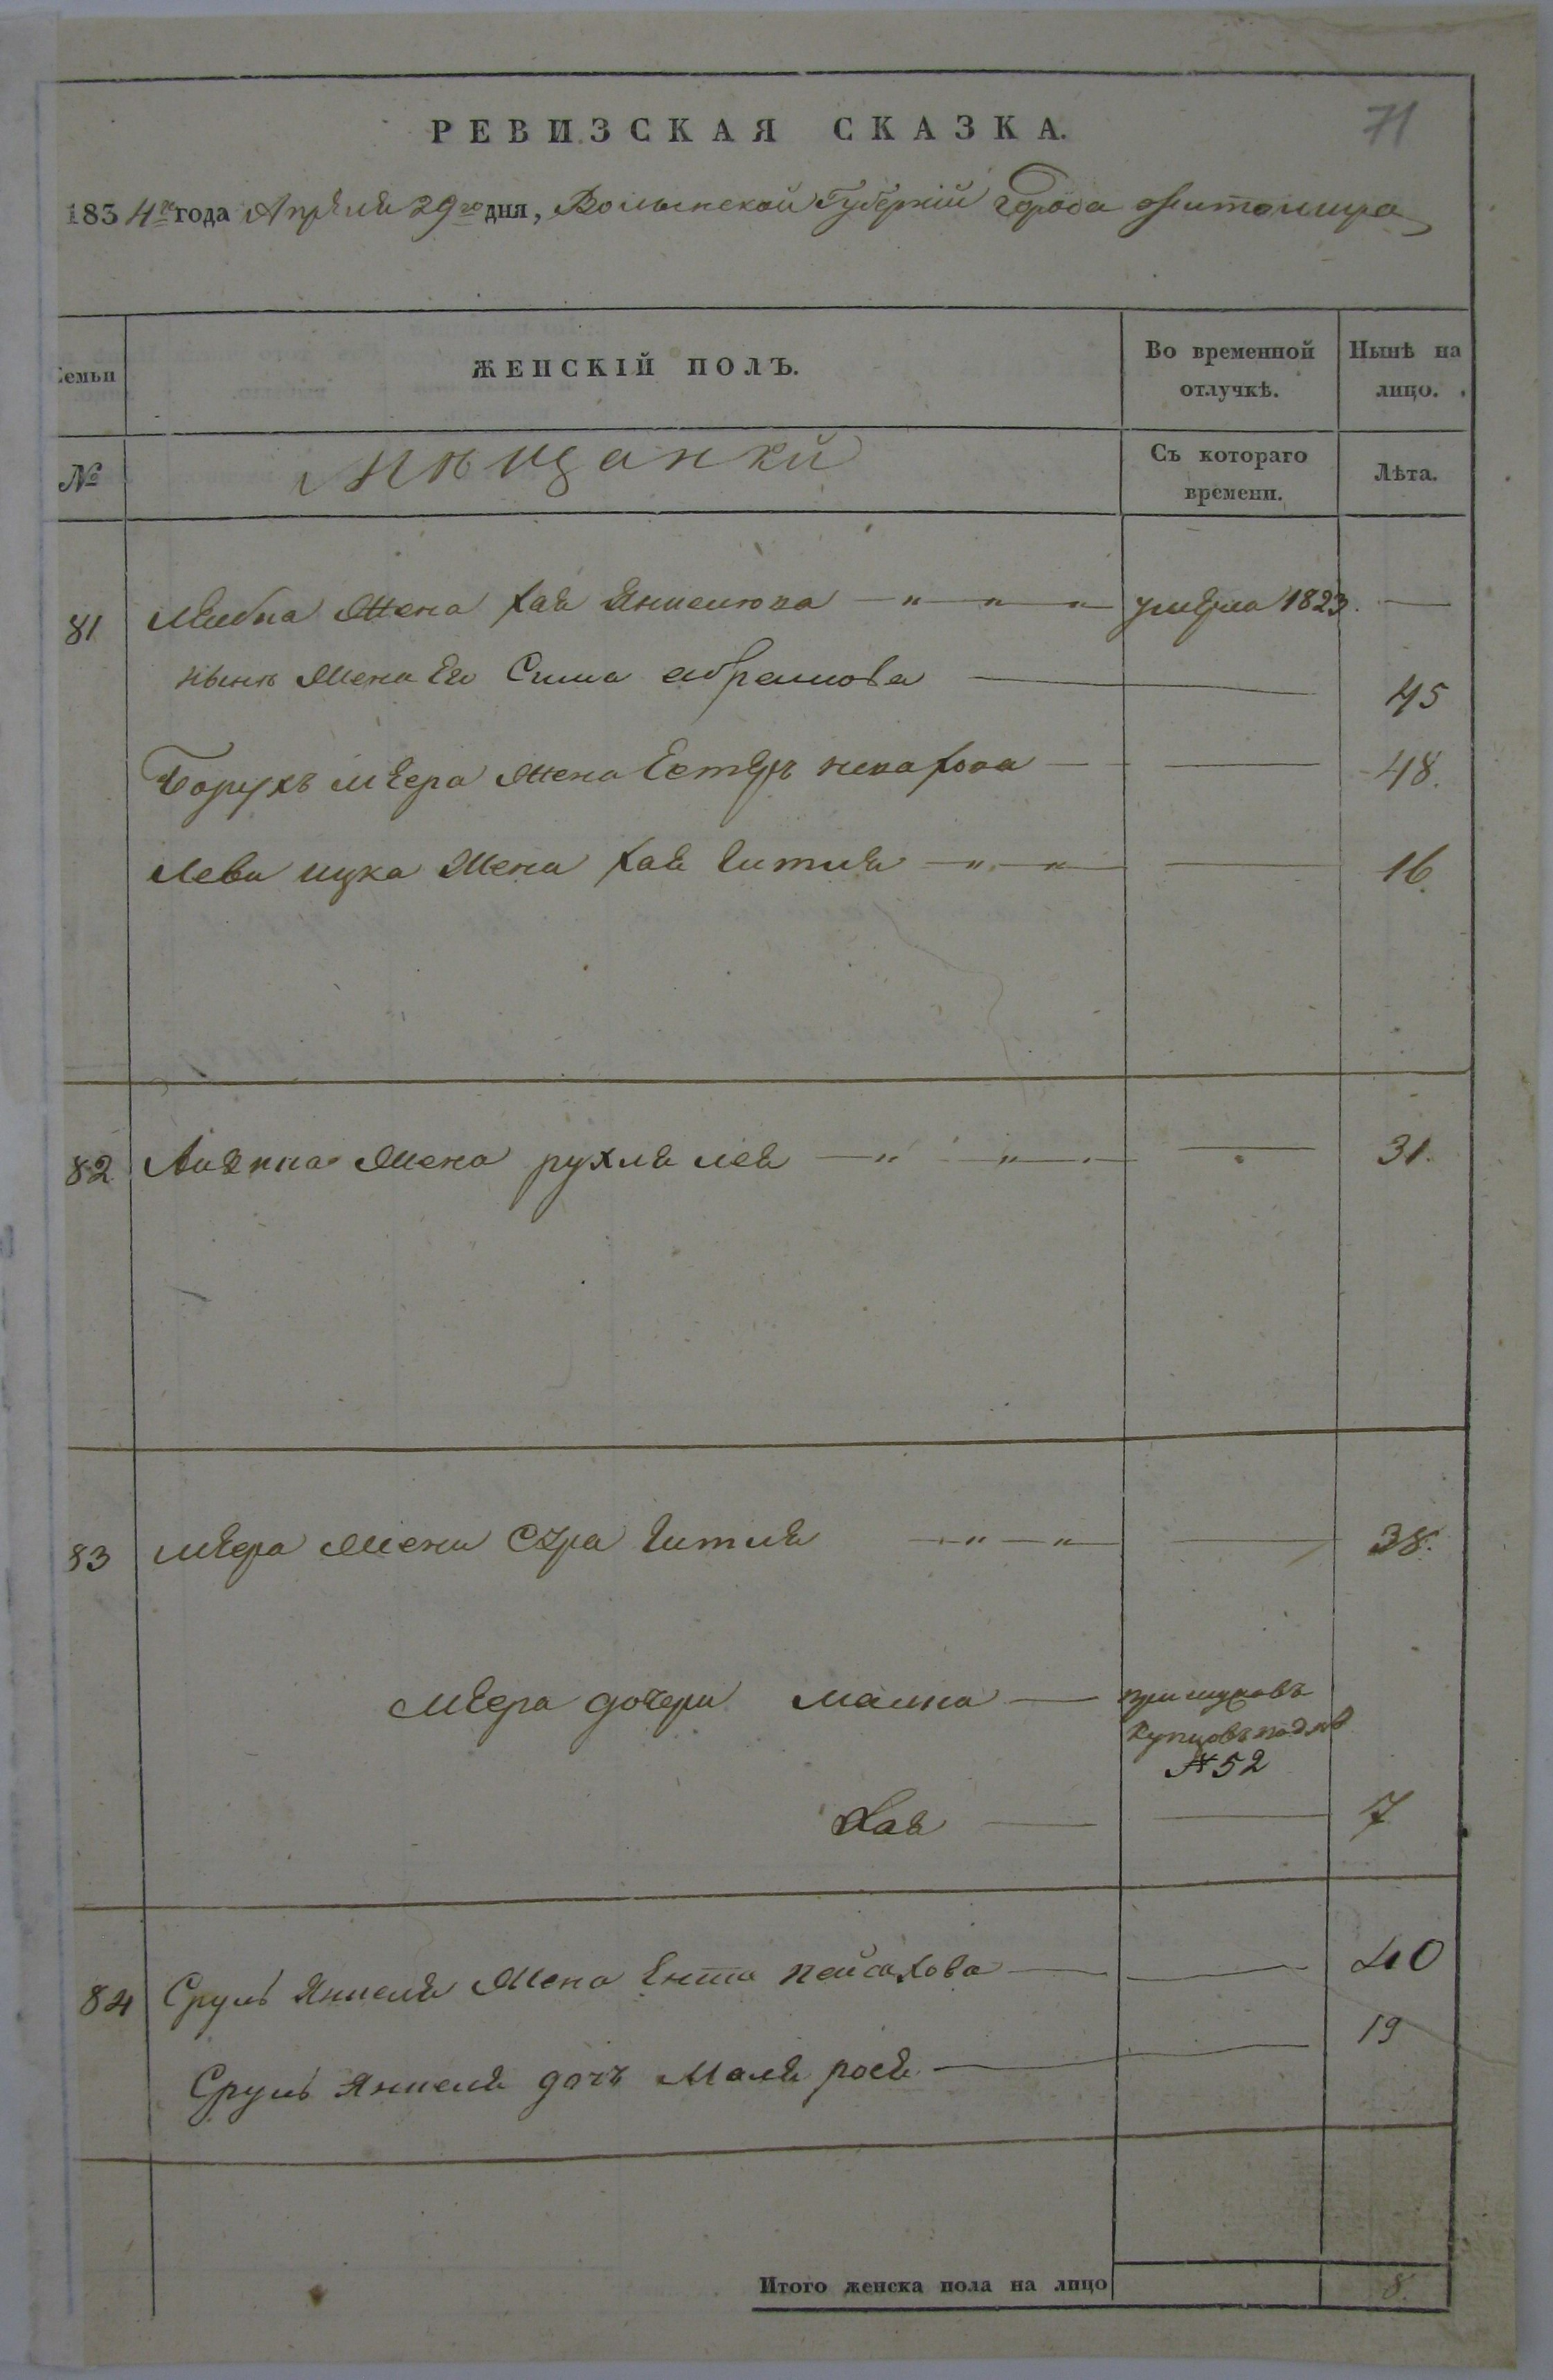 71
РЕВИЗСКАЯ СКАЗКА.
1834го года Апреля 29го дня, Волынской Губернiи Города Житомира
Семьи
ЖЕНСКІЙ ПОЛЪ.
Во временной отлучкѣ.
Нынѣ на лицо.
№
Мѣщанки
Съ котораго времени.
Лѣта.
81 Лейбка Жена Хая Янкелюва умерла 1823. —
нынѣ Жена Его Сима абрамова — 45
Борухъ меера Жена Естеръ — 48.
Лева ицка Жена Хая Гитля — 16.
82 Жена рухля лея — 31.
83 меера Жена Сура Гитля — 38.
Меера дочери малка — при мужовъ Купцовъ под №
№ 52
Хая — 7
84 Сруль Янкеля Жена Ента пейсахова — 40
Сруль Янкеля дочъ Маля рося — 19
Итого женска пола на лицо 8.